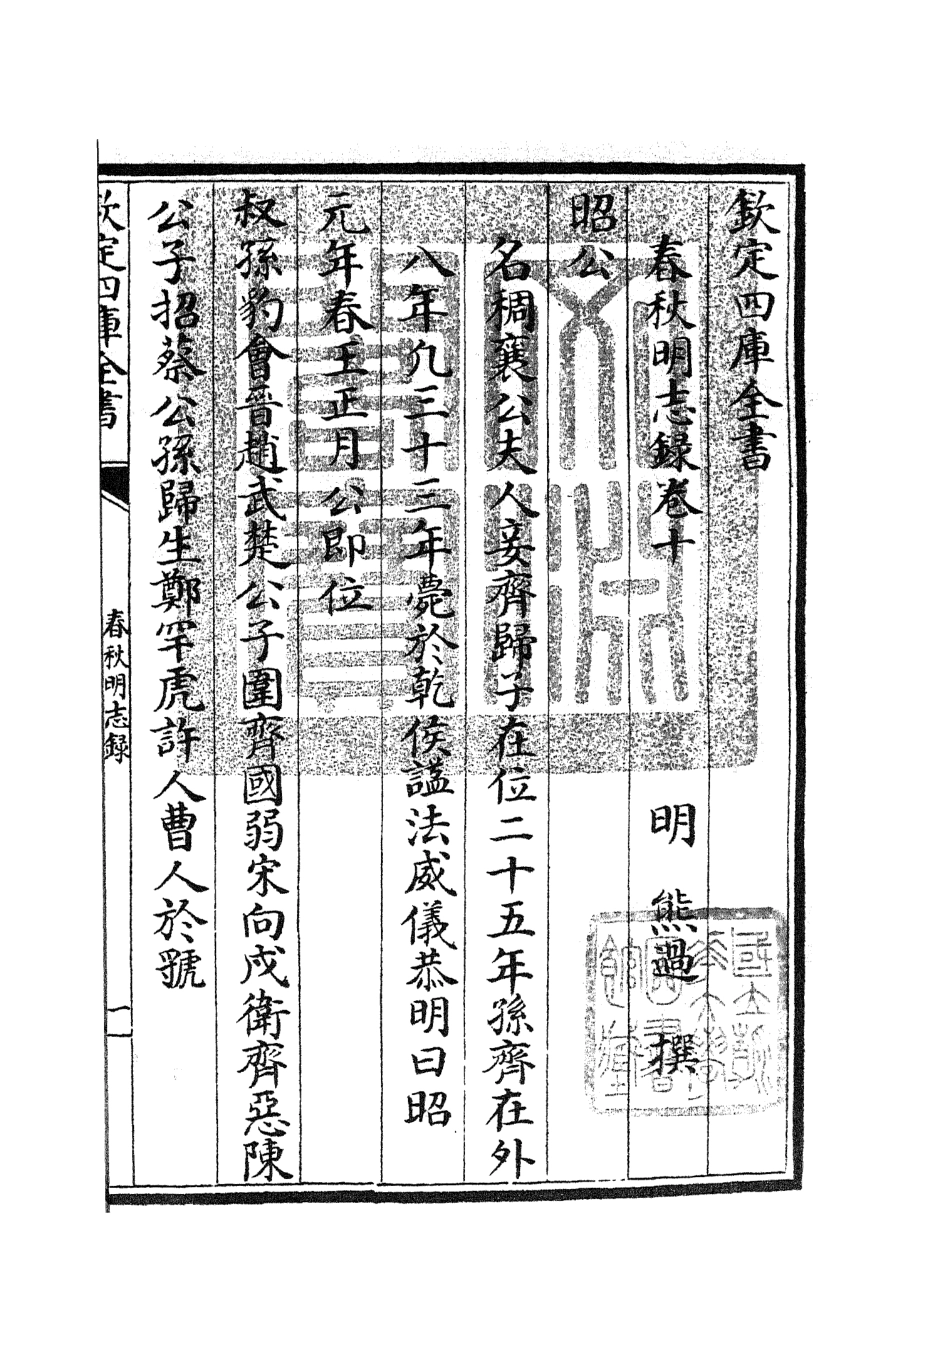 欽定四庫全書
春秋明志錄卷十
明 熊過 撰
昭公
名稠襄公夫人妾齊歸子在位二十五年孫齊在外
八年凢三十三年薨於乾侯諡法威儀恭明曰昭
元年春王正月公即位
叔孫豹會晉趙武楚公子圍齊國弱宋向戍衛齊惡陳
公子招蔡公孫歸生鄭罕虎許人曹人於虢
欽定四庫全書
春秋明志錄
一